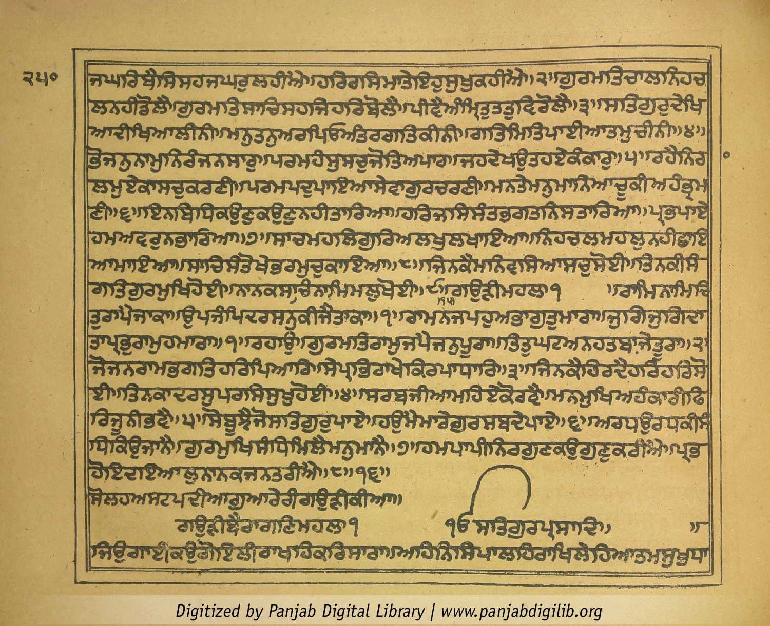 ੨੫੦
ਜਘਰਿਬੈਸਿਸਹਜਘਰੁਲਹੀਐ॥ਹਰਿਰਸਿਮਾਤੇਇਹੁਸੁਖੁਕਹੀਐ॥੨॥ਗੁਰਮਤਿਚਾਲਨਿਹਚ
ਲਨਹੀਡੋਲੈ॥ਗੁਰਮਤਿਸਾਚਿਸਹਜਿਹਰਿਬੋਲੈ॥ਪੀਵੈਅੰਮ੍ਰਿਤੁਤਤੁਵਿਰੋਲੈ॥੩॥ਸਤਿਗੁਰੁਦੇਖਿ
ਆਦੀਖਿਆਲੀਨੀ॥ਮਨੁਤਨੁਅਰਪਿਓਅੰਤਰਗਤਿਕੀਨੀ॥ਗਤਿਮਿਤਿਪਾਈਆਤਮੁਚੀਨੀ॥੪॥
ਭੋਜਨੁਨਾਮੁਨਿਰੰਜਨਸਾਰੁ॥ਪਰਮਹੰਸੁਸਚੁਜੋਤਿਅਪਾਰ॥ਜਹਦੇਖਉਤਹਏਕੰਕਾਰੁ॥੫॥ਰਹੈਨਿਰਾ
ਲਮੁਏਕਾਸਚੁਕਰਣੀ॥ਪਰਮਪਦੁਪਾਇਆਸੇਵਾਗੁਰਚਰਣੀ॥ਮਨਤੇਮਨੁਮਾਨਿਆਚੂਕੀਅਹੰਭ੍ਰਮ
ਣੀ॥੬॥ਇਨਬਿਧਿਕਉਣੁਕਉਣੁਨਹੀਤਾਰਿਆ॥ਹਰਿਜਸਿਸੰਤਭਗਤਨਿਸਤਾਰਿਆ॥ਪ੍ਰਭਪਾਏ
ਹਮਅਵਰੁਨਭਾਰਿਆ॥੭॥ਸਾਚਮਹਲਿਗੁਰਿਅਲਖੁਲਖਾਇਆ॥ਨਿਹਚਲਮਹਲੁਨਹੀਛਾਇ
ਆਮਾਇਆ॥ਸਾਚਿਸੰਤੋਖੇਭਰਮੁਚੁਕਾਇਆ॥੮॥ਜਿਨਕੈਮਨਿਵਸਿਆਸਚੁਸੋਈ॥ਤਿਨਕੀਸੰ
ਗਤਿਗੁਰਮੁਖਿਹੋਈ॥ਨਾਨਕਸਾਚਿਨਾਮਿਮਲੁਖੋਈ॥੯॥ਗਉੜੀਮਹਲਾ੧ ॥ਰਾਮਿਨਾਮਿਚਿ
੧੫
ਤੁਰਾਪੈਜਾਕਾ॥ਉਪਜੰਪਿਦਰਸਨੁਕੀਜੈਤਾਕਾ॥੧॥ਰਾਮਨਜਪਹੁਅਭਾਗੁਤੁਮਾਰਾ॥ਜੁਗਿਜੁਗਿਦਾ
ਤਾਪ੍ਰਭੁਰਾਮੁਹਮਾਰਾ॥੧॥ਰਹਾਉ॥ਗੁਰਮਤਿਰਾਮੁਜਪੈਜਨੁਪੂਰਾ॥ਤਿਤੁਘਟਅਨਹਤਬਾਜੇਤੂਰਾ॥੨॥
ਜੋਜਨਰਾਮਭਗਤਿਹਰਿਪਿਆਰਿ॥ਸੇਪ੍ਰਭਿਰਾਖੇਕਿਰਪਾਧਾਰਿ॥੩॥ਜਿਨਕੈਹਿਰਦੈਹਰਿਹਰਿਸੋ
ਈ॥ਤਿਨਕਾਦਰਸੁਪਰਸਿਸੁਖੁਹੋਈ॥੪॥ਸਰਬਜੀਆਮਹਿਏਕੋਰਵੈ॥ਮਨਮੁਖਿਅਹੰਕਾਰੀਫਿ
ਰਿਜੂਨੀਭਵੈ॥੫॥ਸੋਬੂਝੈਜੋਸਤਿਗੁਰੁਪਾਏ॥ਹਉਮੈਮਾਰੇਗੁਰਸਬਦੇਪਾਏ॥੬॥ਅਰਧਉਰਧਕੀਸੰ
ਧਿਕਿਉਜਾਨੈ॥ਗੁਰਮੁਖਿਸੰਧਿਮਿਲੈਮਨੁਮਾਨੈ॥੭॥ਹਮਪਾਪੀਨਿਰਗੁਣਕਉਗੁਣੁਕਰੀਐ॥ਪ੍ਰਭ
ਹੋਇਦਇਆਲੁਨਾਨਕਜਨਤਰੀਐ॥੮॥੧੬॥
ਸੋਲਹਅਸਟਪਦੀਆਗੁਆਰੇਰੀਗਉੜੀਕੀਆ॥
ਗਉੜੀਬੈਰਾਗਣਿਮਹਲਾ੧ ੴਸਤਿਗੁਰਪ੍ਰਸਾਦਿ॥ ॥
ਜਿਉਗਾਈਕਉਗੋਇਲੀਰਾਖਹਿਕਰਿਸਾਰਾ॥ਅਹਿਨਿਸਿਪਾਲਹਿਰਾਖਿਲੇਹਿਆਤਮਸੁਖੁਧਾ
Digitized by Panjab Digital Library | www.panjabdigilib.org